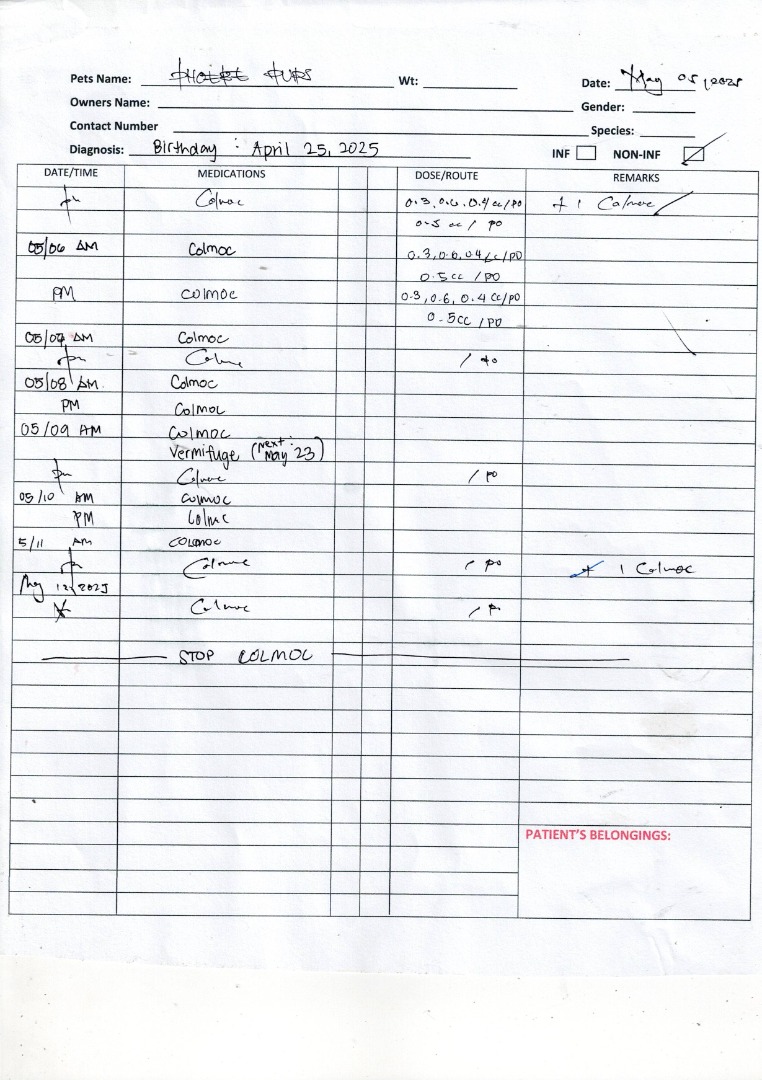 Pets Name: PUPS Wt: Date: May 05, 2025
Owners Name: Gender:
Contact Number Species:
Diagnosis: Birthday : April 25, 2025 INF NON-INF
DATE/TIME MEDICATIONS DOSE/ROUTE REMARKS
pm Colmoc 0.3, 0.6, 0.4 cc/PO + 1 Colmoc
0.5 cc / PO
05/06 AM Colmoc 0.3, 0.6, 0.4 cc/PO
0.5 cc / PO
PM Colmoc 0.3, 0.6, 0.4 cc/PO
0.5 cc / PO
05/07 AM Colmoc
pm Colmoc / PO
05/08 AM Colmoc
PM Colmoc
05/09 AM Colmoc
Vermifuge (next: May 23)
pm Colmoc / PO
05/10 AM Colmoc
PM Colmoc
5/11 AM COLMOC
pm Colmoc / PO + 1 Colmoc
May 12, 2025
Colmoc / PO
STOP COLMOC
PATIENT'S BELONGINGS: